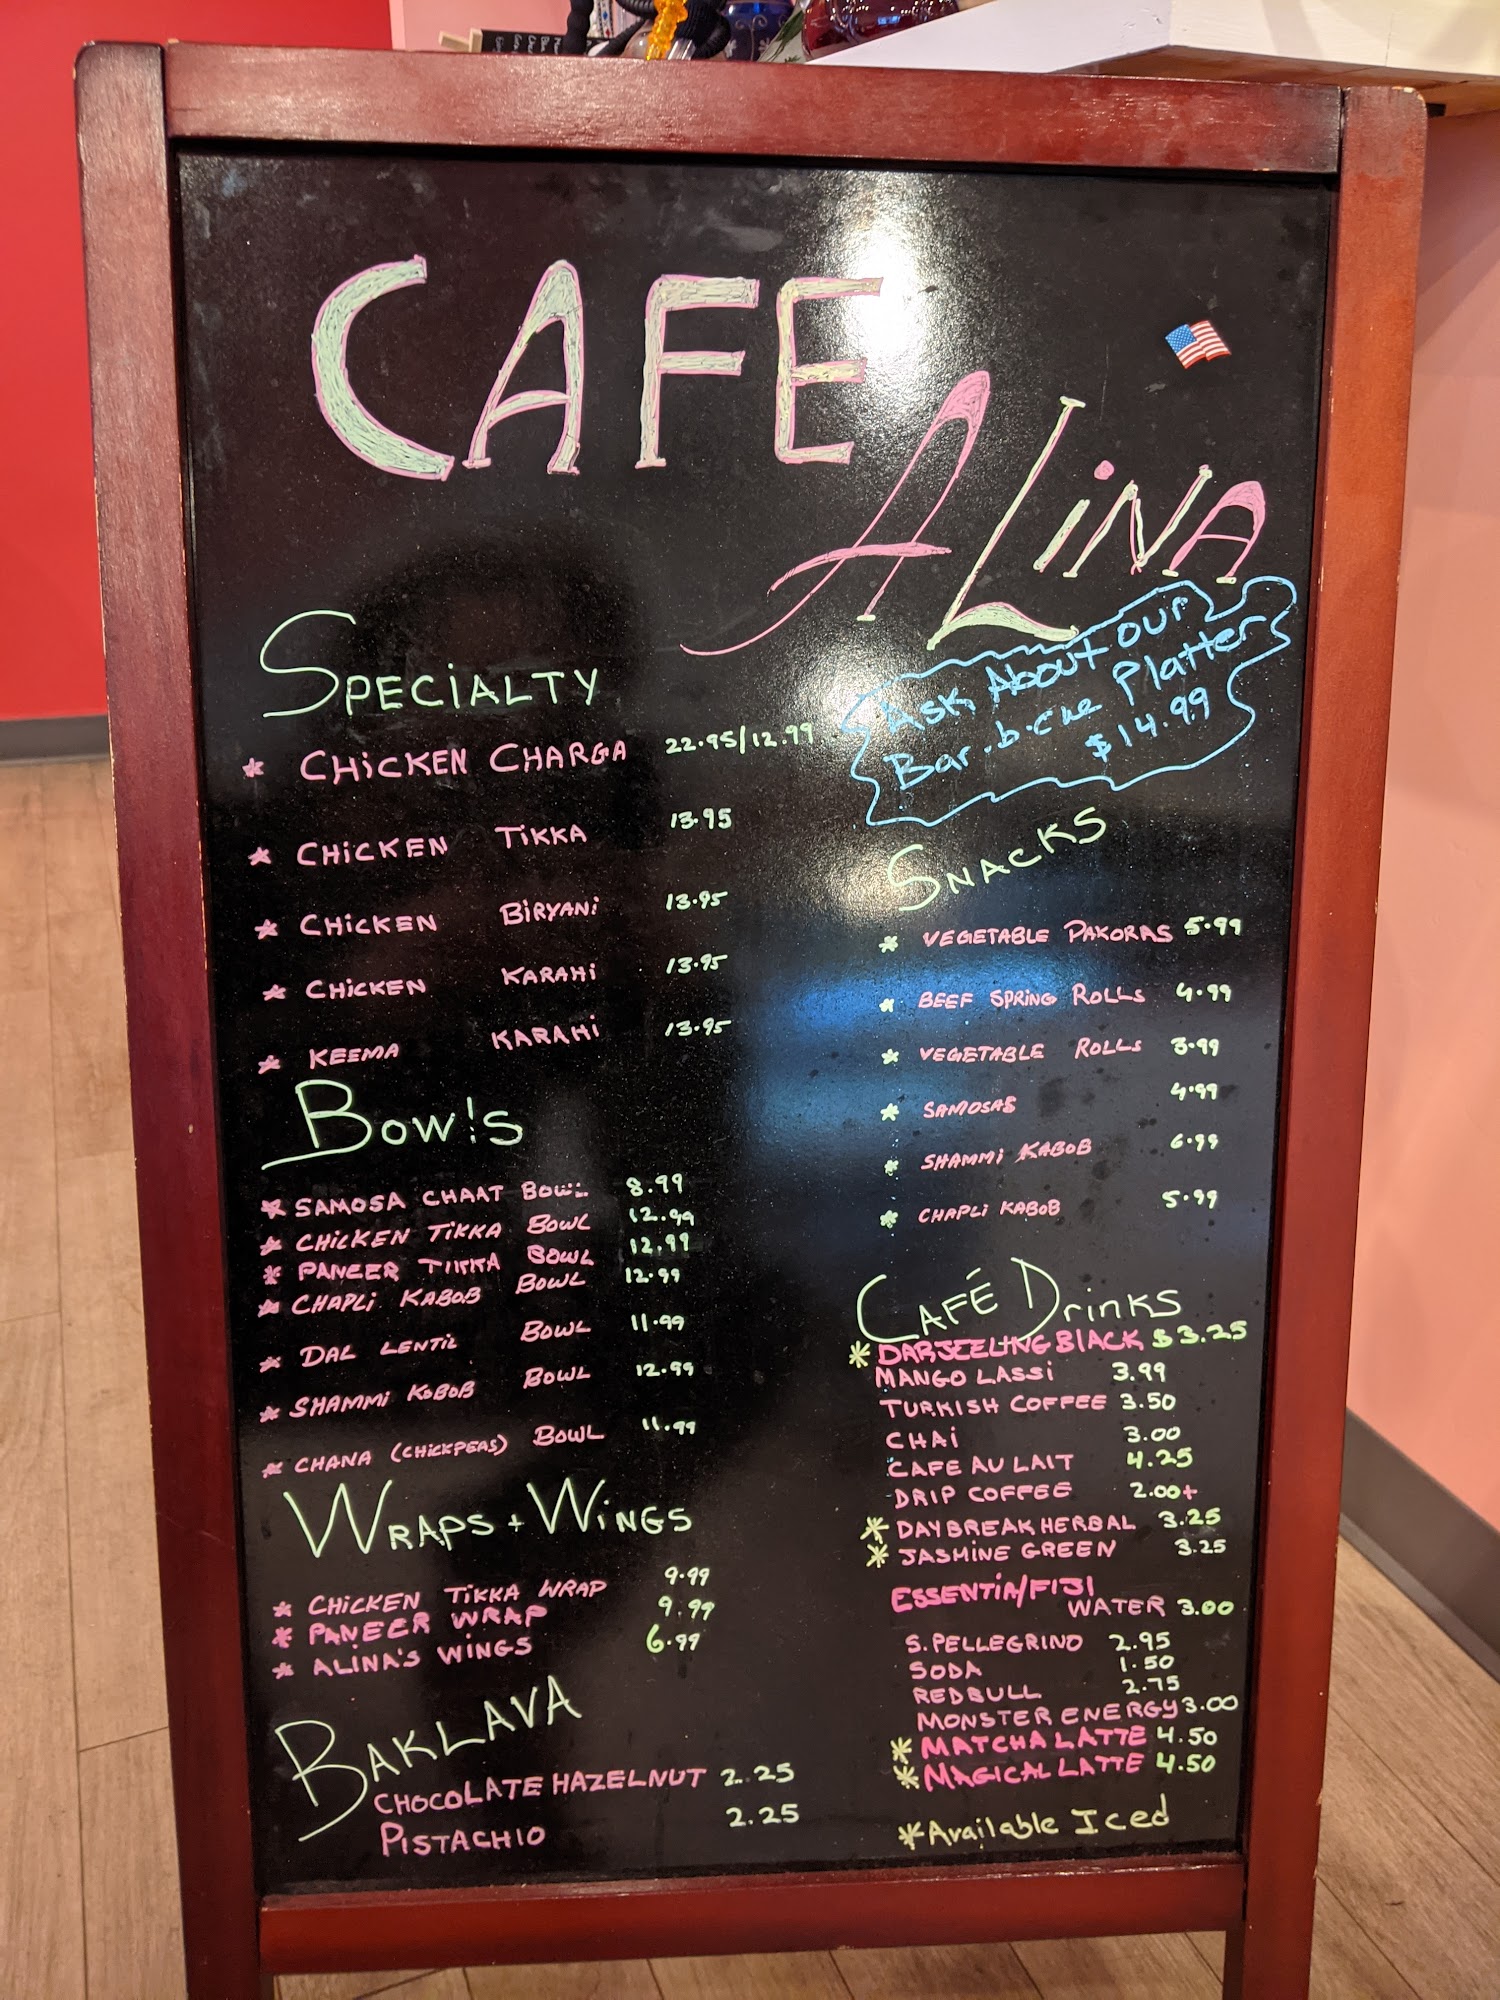 CAFE
ALiNA
Ask About our
Bar.b.cue Platter
$14.99
SPECiALTY
* CHiCKEN CHARGA 22.95/12.99
* CHiCKEN TiKKA 13.95
* CHiCKEN BiRYANi 13.95
* CHiCKEN KARAHi 13.95
* KEEMA KARAHi 13.95
Bow!s
* SAMOSA CHAAT BOWL 8.99
* CHiCKEN TiKKA BOWL 12.99
* PANEER TIKKA BOWL 12.99
* CHAPLi KABOB BOWL 12.99
* DAL LENTiL BOWL 11.99
* SHAMMi KoBOB BOWL 12.99
* CHANA (CHiCKPEAS) BOWL 11.99
WRAPS + WiNGS
* CHiCKEN TiKKA WRAP 9.99
* PANEER WRAP 9.99
* ALiNA'S WiNGS 6.99
BAKLAVA
CHOCOLATE HAZELNUT 2.25
PISTACHIO 2.25
SNACKS
* VEGETABLE PAKORAS 5.99
* BEEF SPRiNG ROLLS 4.99
* VEGETABLE ROLLS 3.99
* SAMOSAS 4.99
* SHAMMi KABOB 6.99
* CHAPLi KABOB 5.99
CAFÉ DrinKS
* DARJEELING BlACK $3.25
MANGO LASSi 3.99
TURKISH COFFEE 3.50
CHAi 3.00
CAFE AU LAIT 4.25
DRIP COFFEE 2.00+
* DAYBREAK HERBAL 3.25
* JASMINE GREEN 3.25
ESSENTiA/FIJI
WATER 3.00
S.PELLEGRINO 2.95
SODA 1.50
REDBULL 2.75
MONSTER ENERGY 3.00
* MATCHA LATTE 4.50
* MAGICAL LATTE 4.50
* Available Iced